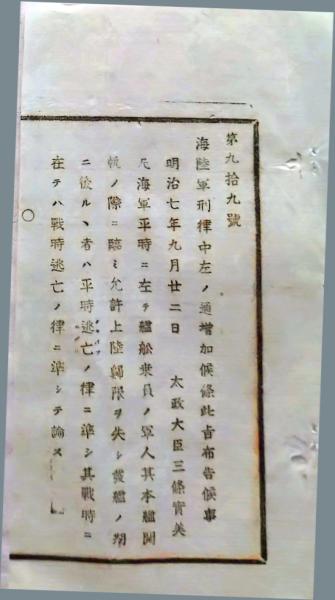 第九拾九號
海陸軍刑律中左ノ通增加候條此旨布告候事
明治七年九月廿二日　太政大臣三條實美
凡海軍平時ニ在テ艦船乗員ノ軍人其本艦開
帆ノ際ニ臨ミ允許上陸歸限ヲ失シ發艦ノ期
ニ後ルヽ者ハ平時逃亡ノ律ニ準シ其戰時ニ
在テハ戰時逃亡ノ律ニ準シテ論ス
〇